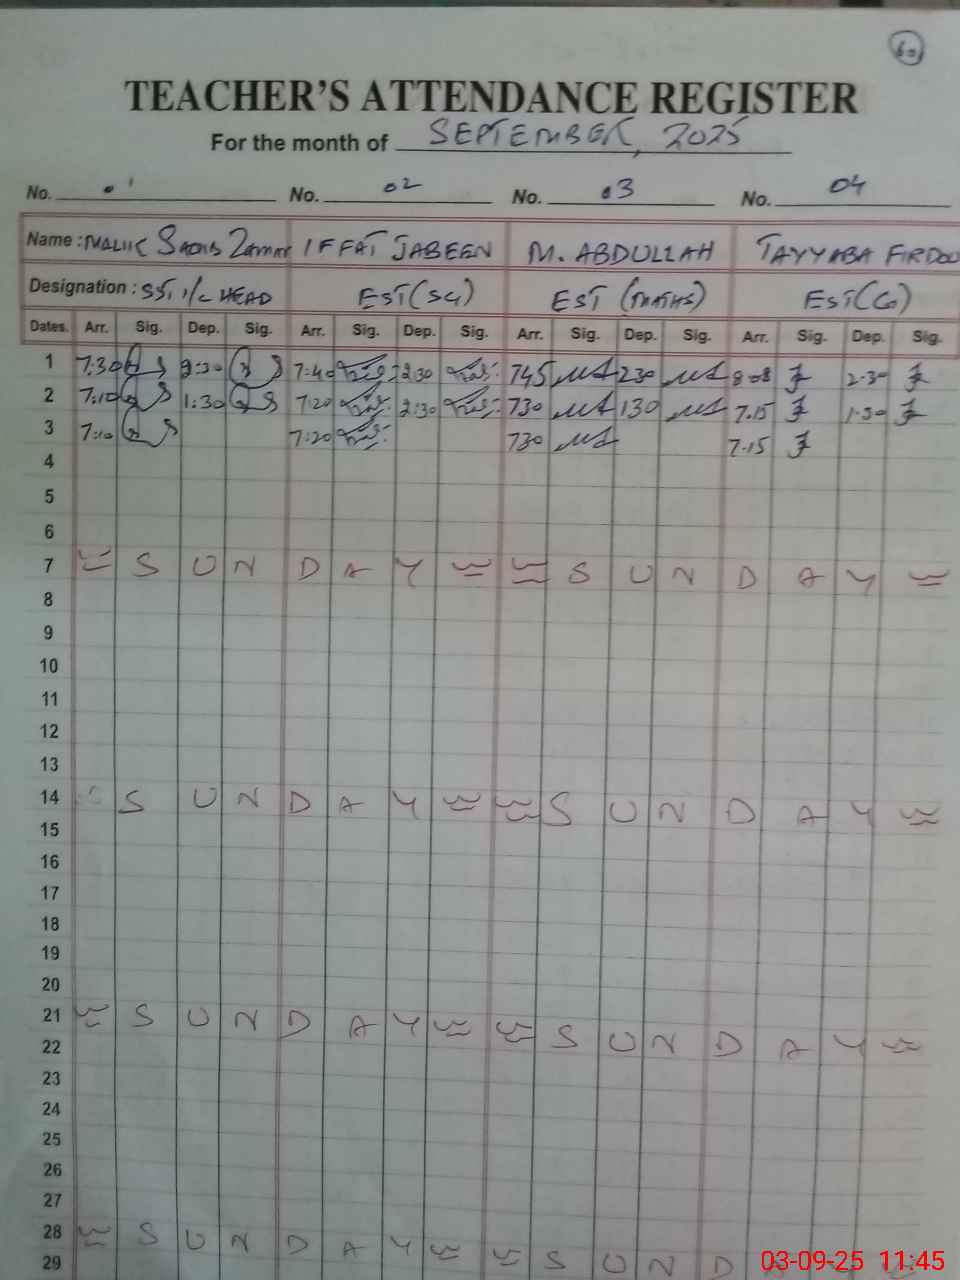 60
TEACHER'S ATTENDANCE REGISTER
For the month of SEPTEMBER, 2025
No. 01 No. 02 No. 03 No. 04
Name : MALIK Zaman IFFAT JABEEN M. ABDULLAH TAYYABA FIRDOU
Designation : SST I/C HEAD EST (SC) EST (MATHS) EST (G)
Dates. Arr. Sig. Dep. Sig. Arr. Sig. Dep. Sig. Arr. Sig. Dep. Sig. Arr. Sig. Dep. Sig.
1 7:30 2:30 7:40 2:30 745 230 8:08 2-30
2 7:10 1:30 7:20 730 130 7.15 1-30
3 7:10 7:20 730 7.15
4
5
6
7 = S U N D A Y = = S U N D A Y =
8
9
10
11
12
13
14 S U N D A Y = = S U N D A Y =
15
16
17
18
19
20
21 = S U N D A Y = = S U N D A Y =
22
23
24
25
26
27
28 = S U N D A Y = = S U N D
29
03-09-25 11:45